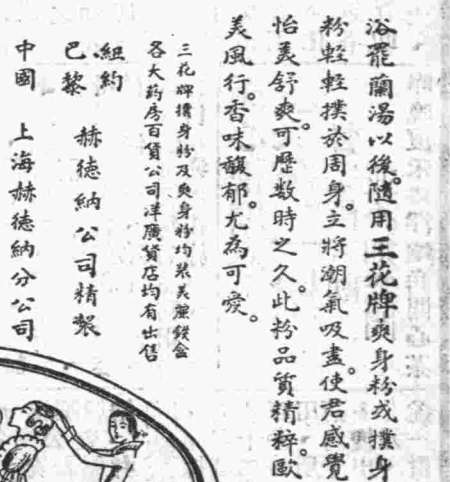 浴罷蘭湯以後。隨用三花牌爽身粉或撲身
粉輕輕撲於周身。立將潮氣吸盡。使君感覺
怡美舒爽。可歷數時之久。此粉品質精粹。歐
美風行。香味馥郁。尤為可愛。
三花牌撲身粉及爽身粉均裝美麗鉄盒
各大葯房百貨公司洋廣貨店均有出售
紐約
巴黎
赫德納公司精製
中國 上海赫德納分公司